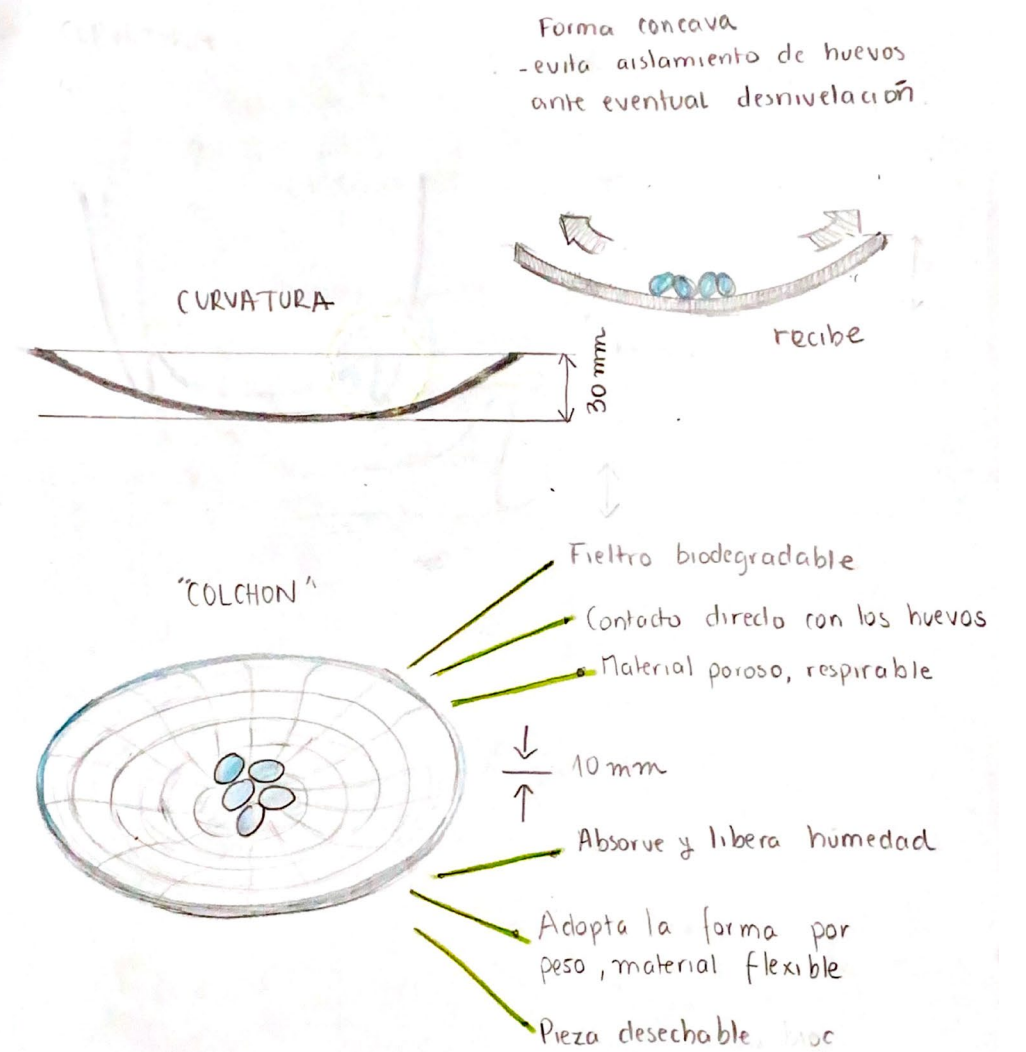 Forma concava
-evita aislamiento de huevos
ante eventual desnivelación
CURVATURA
recibe
30 mm
"COLCHON"
Fieltro biodegradable
Contacto directo con los huevos
Material poroso, respirable
10 mm
Absorve y libera humedad
Adopta la forma por
peso, material flexible
Pieza desechable